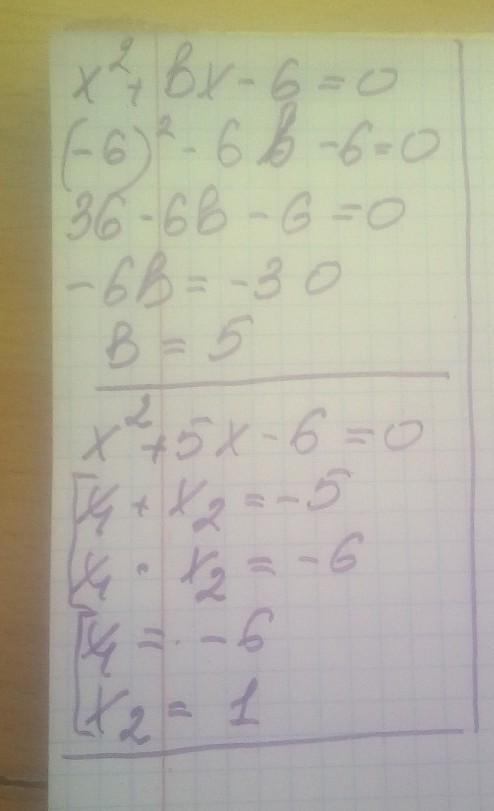 x² + bx - 6 = 0
(-6)² - 6b - 6 = 0
36 - 6b - 6 = 0
-6b = -30
b = 5
x² + 5x - 6 = 0
[x₁ + x₂ = -5
x₁ · x₂ = -6
[x₁ = -6
x₂ = 1